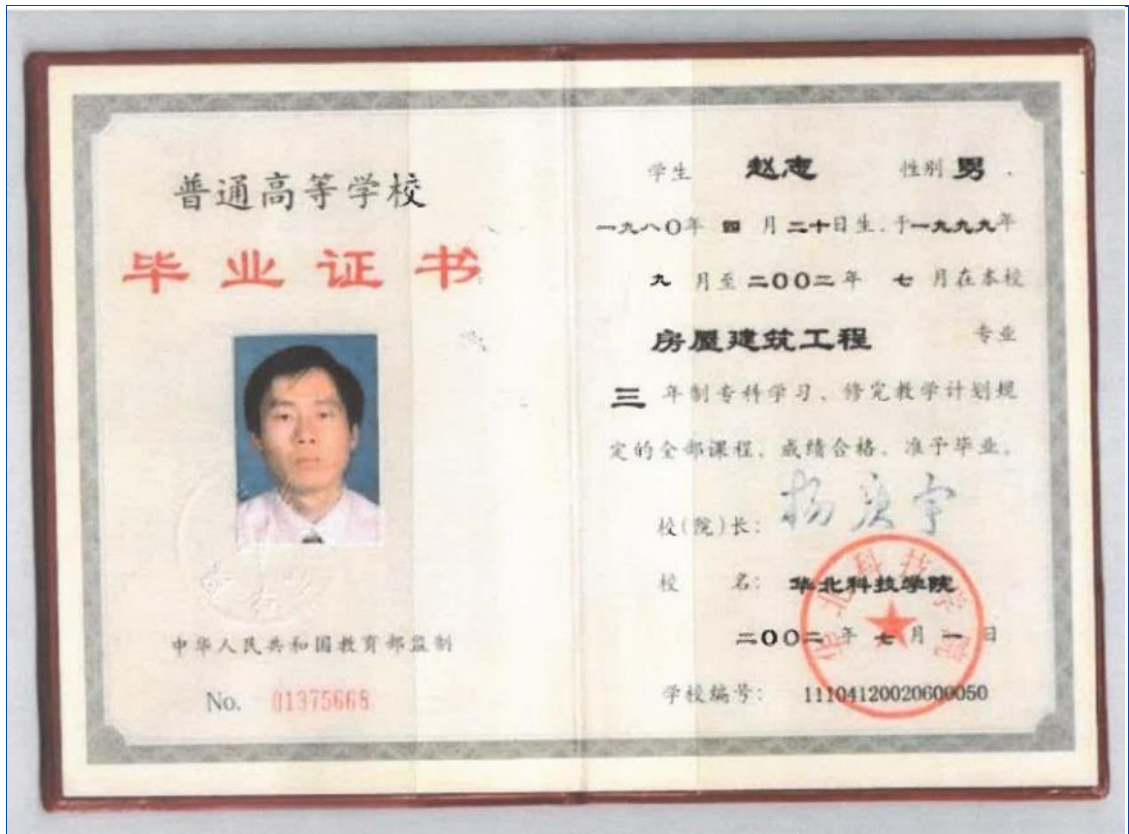 普通高等学校
毕业证书
中华人民共和国教育部监制
No. 01375668
学生 赵志 性别 男 .
一九八〇年 四 月 二十日生,于一九九九年
九 月至 二〇〇二年 七 月在本校
房屋建筑工程 专业
三 年制专科学习、修完教学计划规
定的全部课程、成绩合格、准予毕业。
校(院)长:
校 名: 华北科技学院
华北科技学院
二〇〇二 年 七 月 一 日
学校编号: 11104120020600050